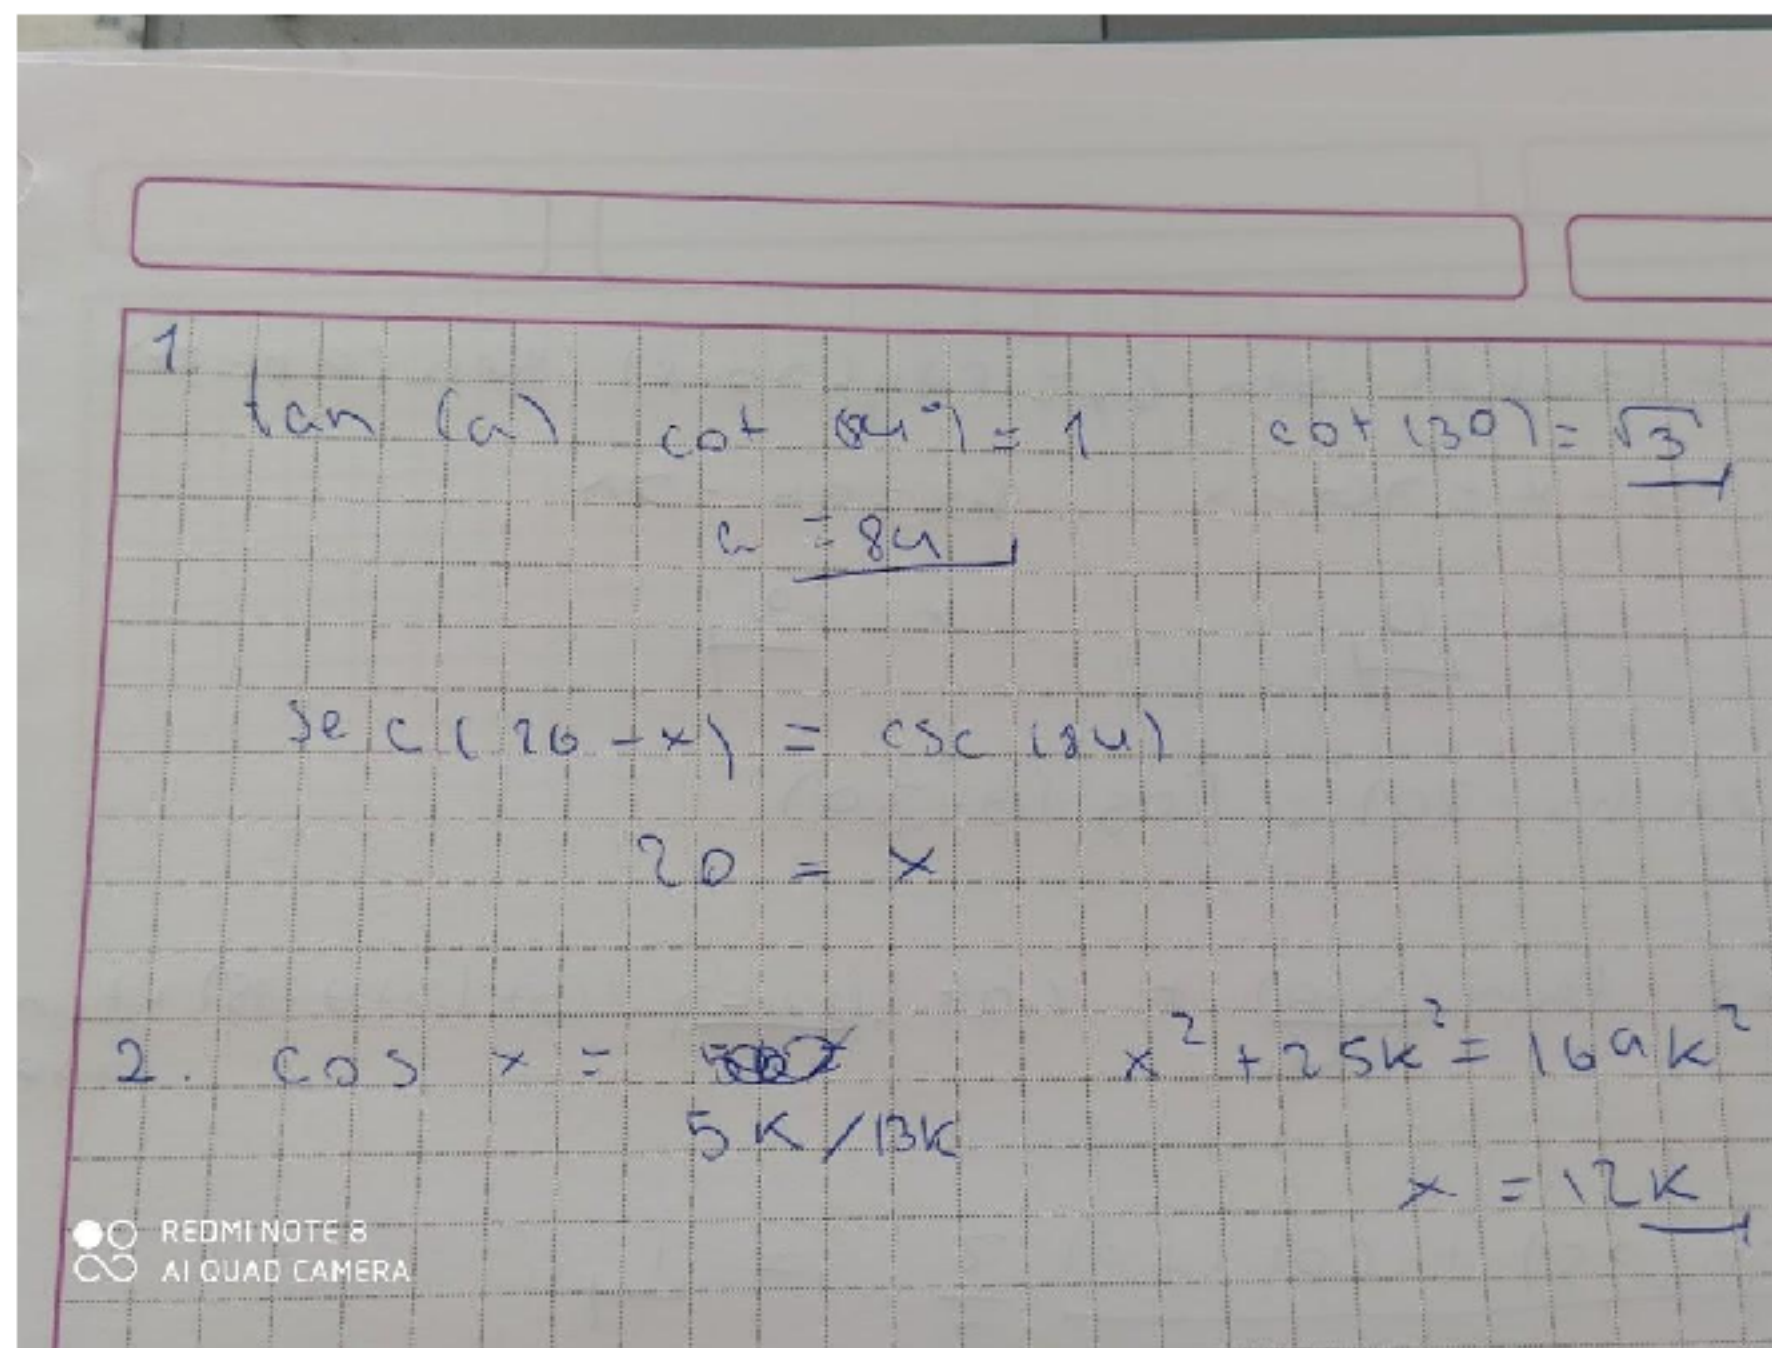 1.
tan (a) cot (84°) = 1 cot (30) = √3
a = 84
sec (26 - x) = csc (84)
20 = x
2. cos x = x² + 25k² = 169k²
5k/13k
x = 12k
REDMI NOTE 8
AI QUAD CAMERA